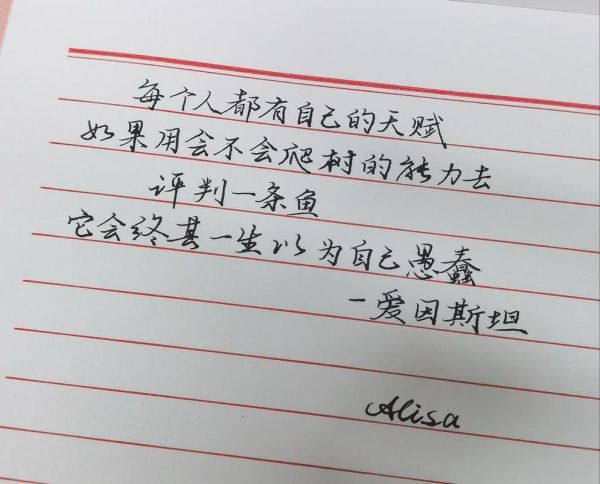 每个人都有自己的天赋
如果用会不会爬树的能力去
评判一条鱼
它会终其一生以为自己愚蠢
－爱因斯坦
Alisa